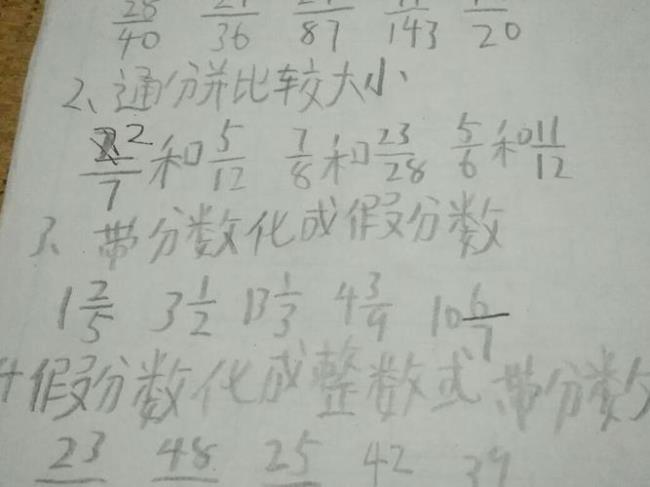 28/40 21/36 /87 /143 /20
2、通分并比较大小
2/7和5/12 7/8和23/28 5/6和11/12
3、带分数化成假分数
1 2/5 3 1/2 13 1/3 4 3/9 10 6/7
4假分数化成整数或带分数
23 48 25 42 39